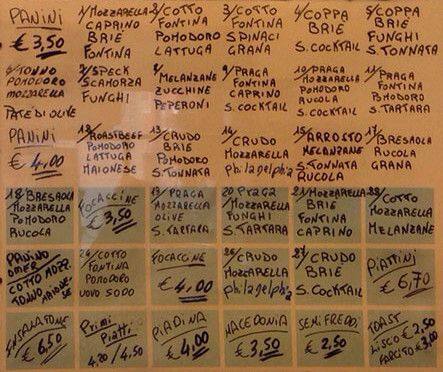 PANINI
€ 3,50
1/MOZZARELLA
CAPRINO
BRIE
FONTINA
2/COTTO
FONTINA
POMODORO
LATTUGA
3/COTTO
FONTINA
SPINACI
GRANA
4/COPPA
BRIE
S.COCKTAIL
5/COPPA
BRIE
FUNGHI
S.TONNATA
6/TONNO
POMODORO
MOZZARELLA
PATÉ DI OLIVE
7/SPECK
SCAMORZA
FUNGHI
8/MELANZANE
ZUCCHINE
PEPERONI
9/PRAGA
FONTINA
S.COCKTAIL
10/PRAGA
MOZZARELLA
POMODORO
RUCOLA
S.COCKTAIL
11/PRAGA
FONTINA
POMODORO
S.TARTARA
PANINI
€ 4,00
12/ROASTBEEF
POMODORO
LATTUGA
MAIONESE
13/CRUDO
BRIE
POMODORO
S.TONNATA
14/CRUDO
MOZZARELLA
philadelphia
15/ARROSTO
MELANZANE
S.TONNATA
RUCOLA
17/BRESAOLA
RUCOLA
GRANA
18/BRESAOLA
MOZZARELLA
POMODORO
RUCOLA
FOCACCINE
€ 3,50
19/PRAGA
MOZZARELLA
OLIVE
S.TARTARA
20/PRAGA
MOZZARELLA
FUNGHI
S.TARTARA
21/MOZZARELLA
BRIE
FONTINA
CAPRINO
22/COTTO
MOZZARELLA
MELANZANE
PANINO
OMER
COTTO MOZZ.
TONNO MAIONE-
SE
24/COTTO
FONTINA
POMODORO
UOVO SODO
FOCACCINE
€ 4,00
26/CRUDO
MOZZARELLA
philadelphia
27/CRUDO
BRIE
S.COCKTAIL
PIATTINI
€ 6,70
INSALATONE
€ 6,50
PRIMI
PIATTI
4,20/4,50
PIADINA
€ 4,00
MACEDONIA
€ 3,50
SEMIFREDDI
€ 2,50
TOAST
LISCO € 2,50
FARCITO € 3,00